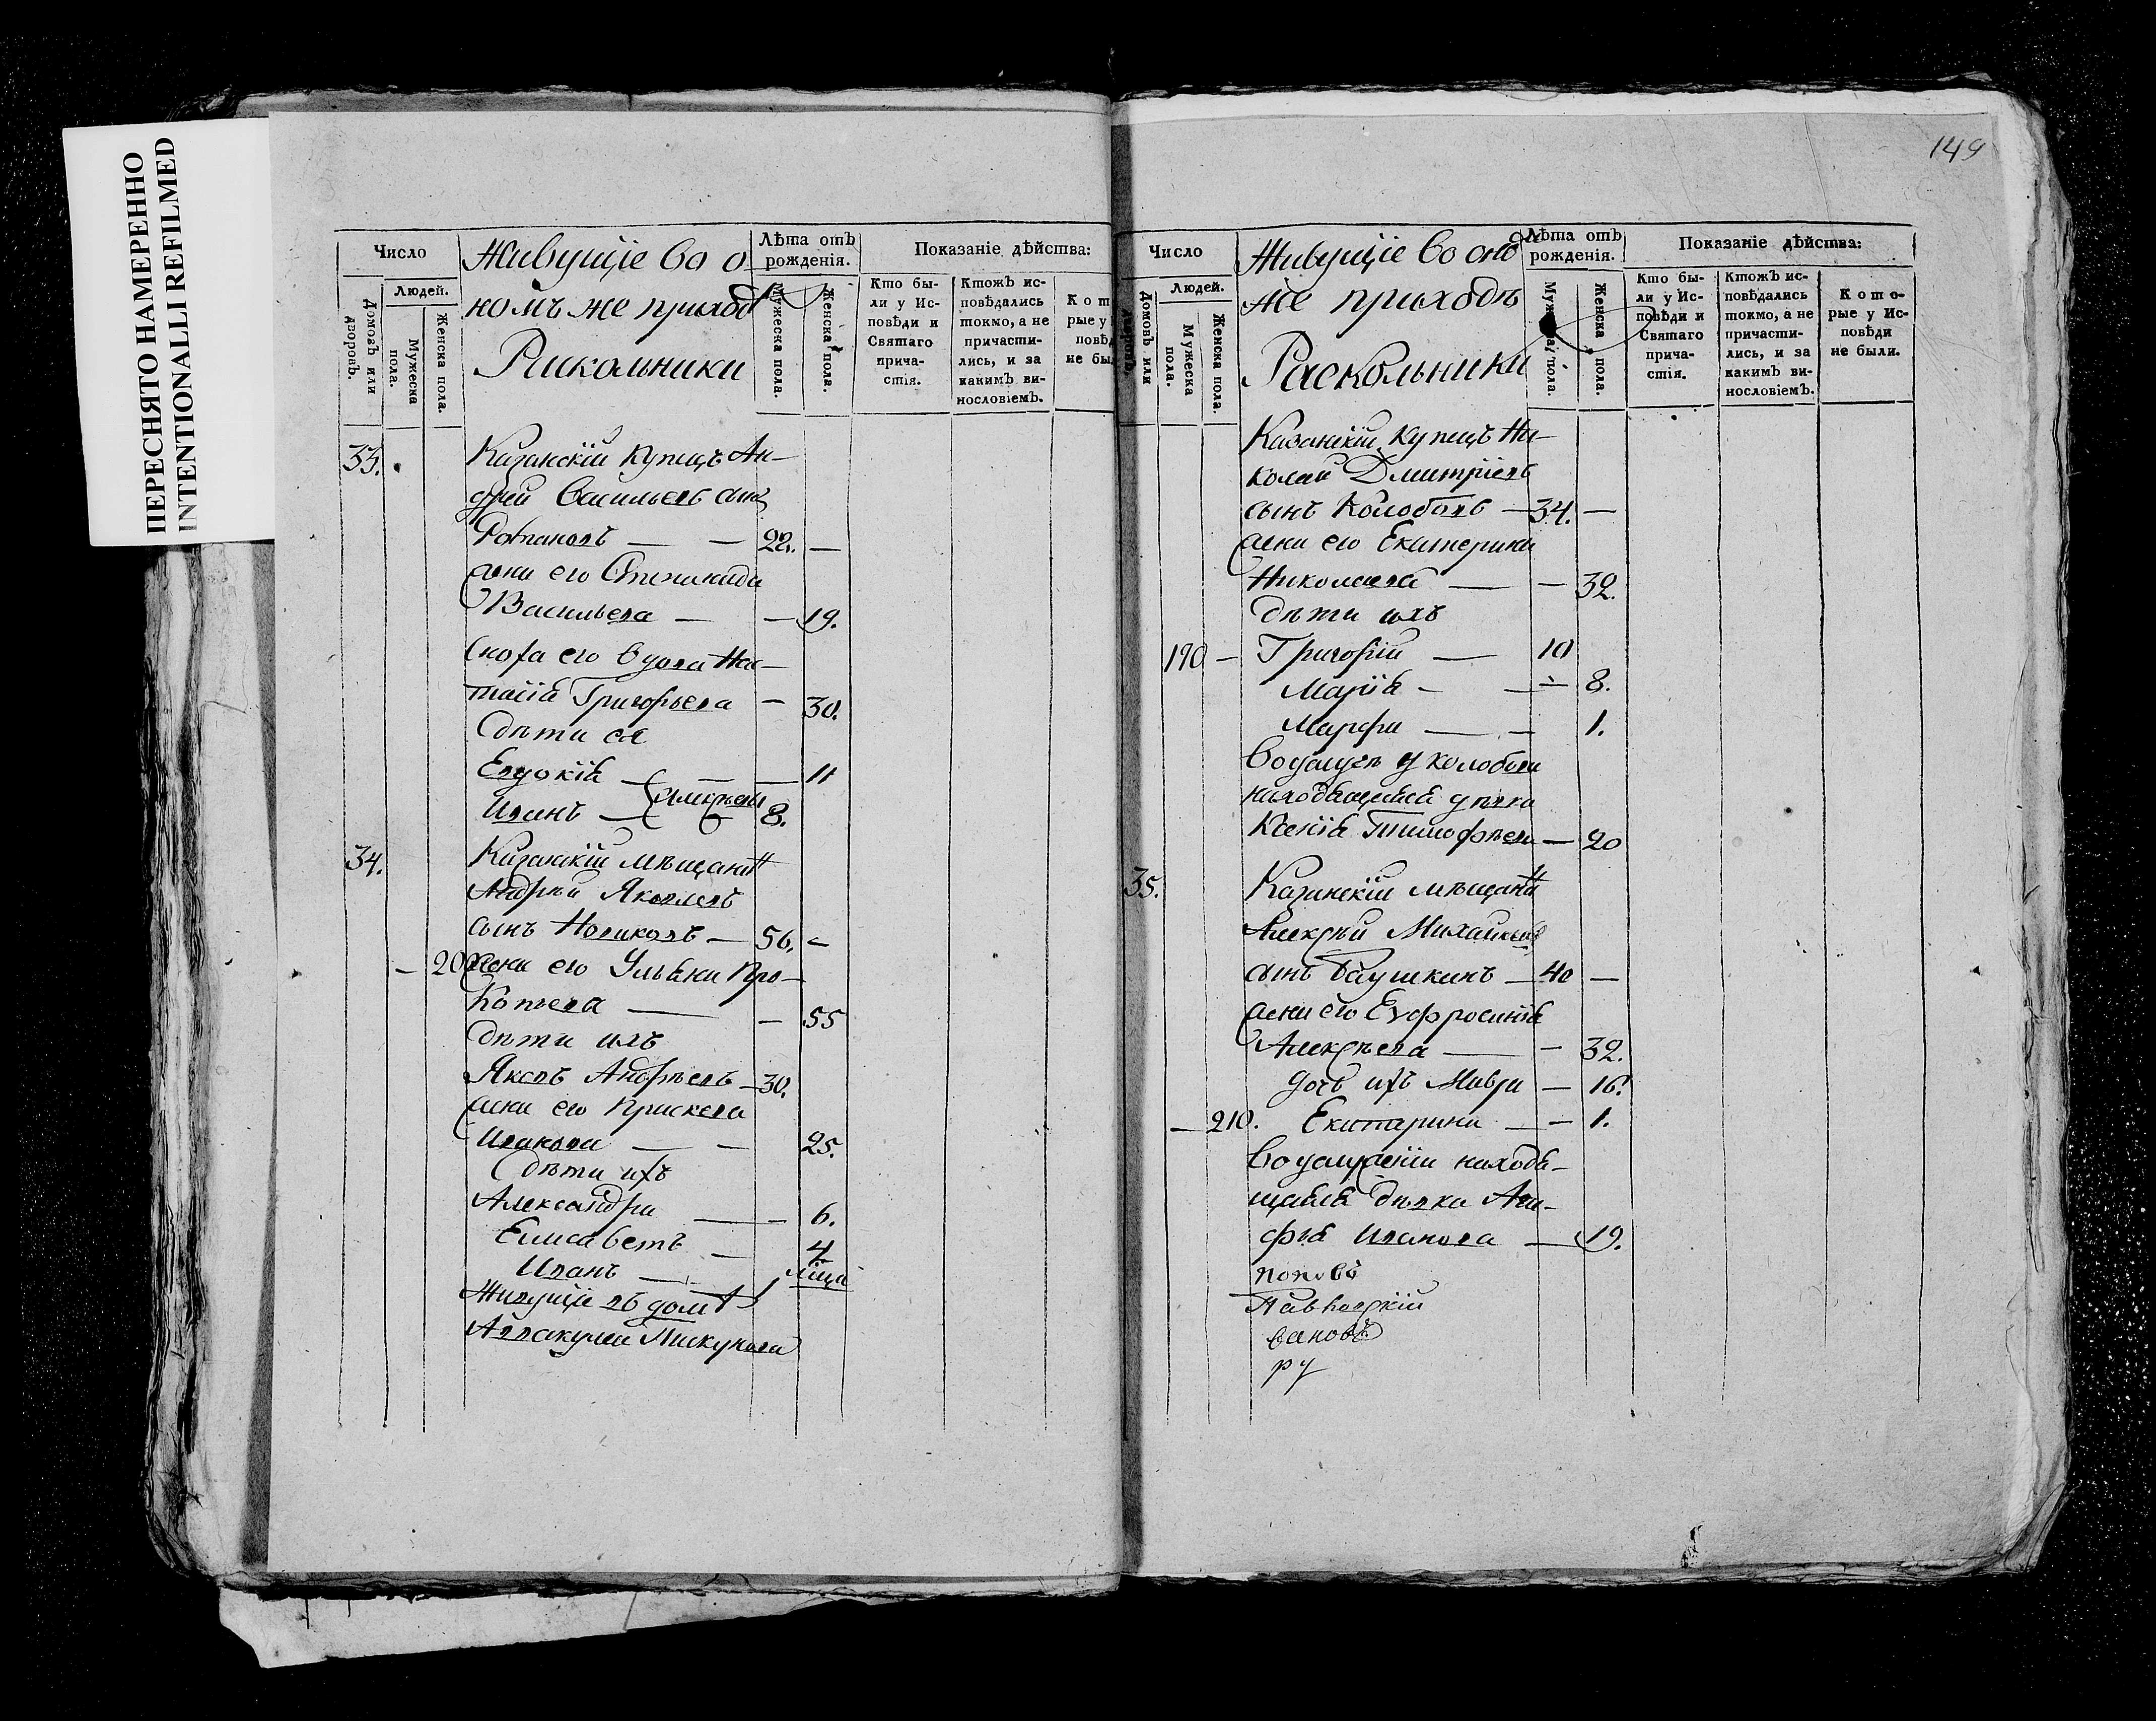 ПЕРЕСНЯТО НАМЕРЕННО
INTENTIONALLI REFILMED
Число
Людей.
Домовъ или дворовъ.
Мужеска пола.
Женска пола.
Живущіе во о
номъ же приход
Раскольники
Лѣта отъ рожденія.
Мужеска пола.
Женска пола.
Показаніе дѣйства:
Кто бы-
ли у Ис-
повѣди и
Святаго
прича-
стія.
Ктожъ ис-
повѣдались
токмо, а не
причасти-
лись, и за
какимъ ви-
нословіемъ.
Кот
рые у
повѣд
не бы
33. Казанскій купецъ Ан-
дрей Васильевъ сынъ
22. —
жена его Степанида
Васильева — — 19.
сноха его вдова На-
талія Григорьева — 30.
дѣти ея
Евдокія — — — 11
Иванъ — 8.
34. Казанскій мѣщанинъ
Андрѣй Яковлевъ
сынъ Новиковъ — 56. —
— 200 жена его Ульяна Про-
копьева — — 55
дѣти ихъ
Яковъ Андрѣевъ — 30.
жена его Прасковья
Иванова — — 25.
дѣти ихъ
Александра — — 6.
Елисаветъ — 4.
Иванъ —
Живущіе въ домѣ
149
Число
Людей.
Домовъ или дворовъ.
Мужеска пола.
Женска пола.
Живущіе во оно
же приходѣ
Раскольники
Лѣта отъ рожденія.
Мужеска пола.
Женска пола.
Показаніе дѣйства:
Кто бы-
ли у Ис-
повѣди и
Святаго
прича-
стія.
Ктожъ ис-
повѣдались
токмо, а не
причасти-
лись, и за
какимъ ви-
нословіемъ.
Кото-
рые у Ис-
повѣди
не были.
Казанскій купецъ Ни-
колай Дмитріевъ
сынъ Колобовъ — 34. —
жена его Екатерина
Николаева — — 32.
дѣти ихъ
190 — Григорій — 10
Марія — — 8.
Марфа — — 1.
находящаяся дѣвка
Ксенія Тимофѣева — 20
35. Казанскій мѣщанинъ
Алексѣй Михайловъ
сынъ — 40 —
жена его Евфросинія
Алексѣева — — 32.
дочь ихъ Мавра — 16.
— 210. Екатерина — — 1.
находя-
щаяся дѣвка Ага-
фья Иванова — 19.
поповъ
вановъ
ру